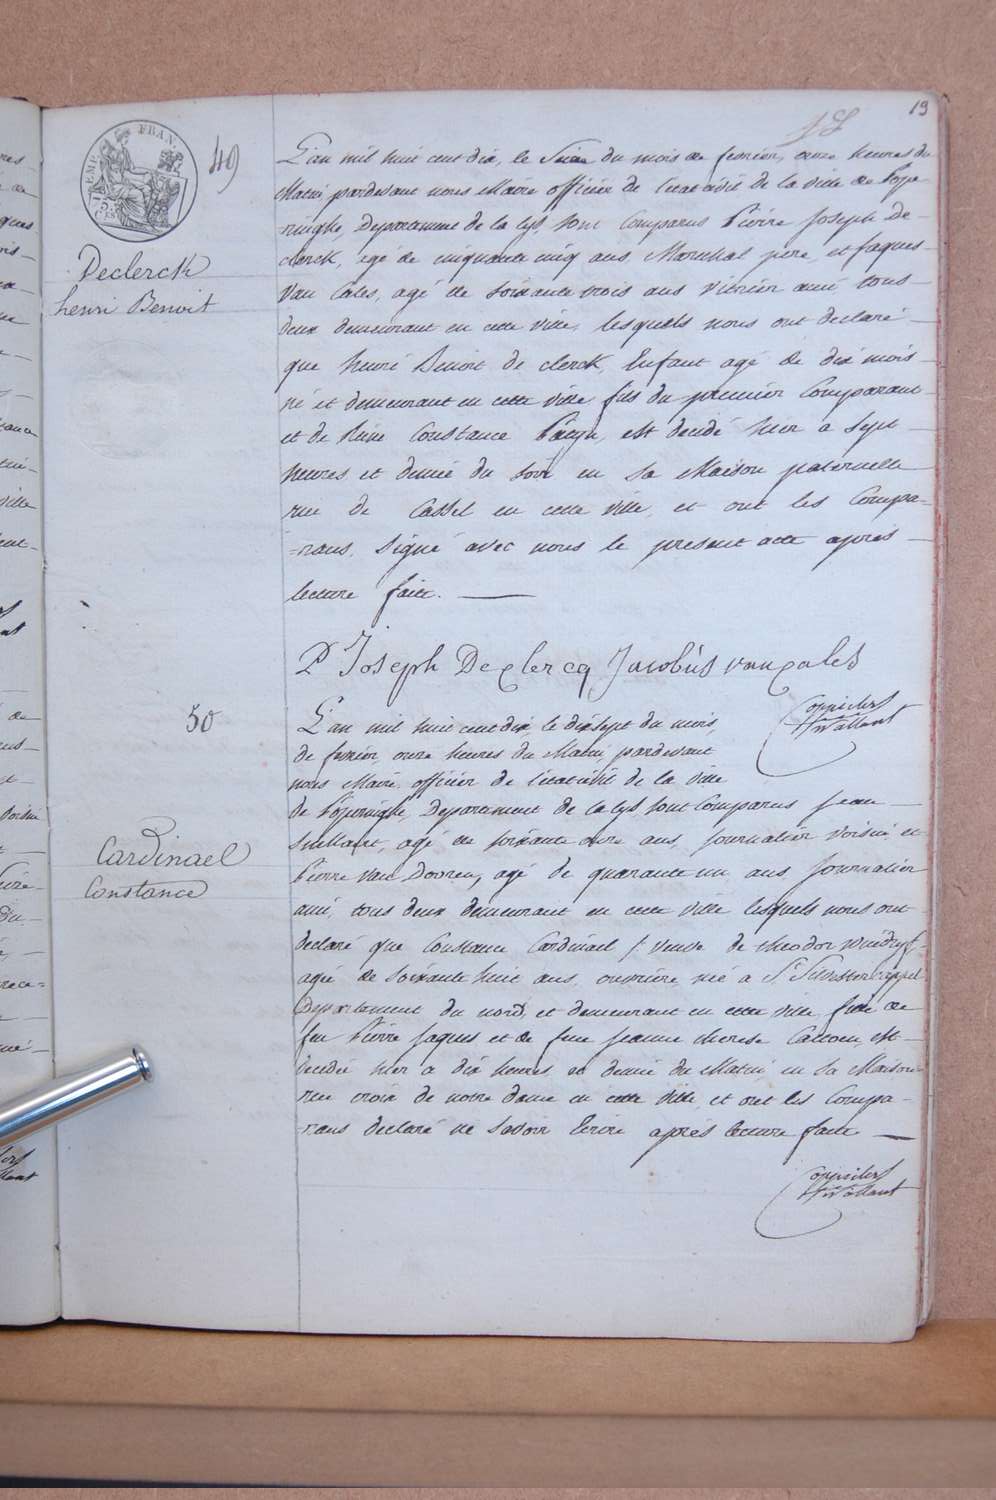 19
EMP. FRAN.
49
Declerck
henri Benoit
L'an mil huit cent dix, le Seize du mois de fevrier, onze heures du
Matin pardevant nous Maire officier de l'état civil de la ville de Pope
ringhe, Departement de la Lys, sont Comparus Pierre Joseph De-
clerck, agé de cinquante cinq ans, Marechal pere, et Jaques
Van Cales, agé de soixante trois ans vitrier ami tous
deux demeurant en cette ville, lesquels nous ont declaré
que henri Benoit de clerck, Enfant agé de dix mois
né et demeurant en cette ville fils du premier Comparant
et de Reine Constance est decedé hier a sept
heures et demie du soir en sa Maison paternelle
rue de Cassel en cette ville, et ont les Compa=
=rans, signé avec nous le present acte apres
lecture faite.
P Joseph Declercq Jacobus vancales
50
Cardinael
Constance
L'an mil huit cent dix, le dixsept du mois,
de fevrier, onze heures du Matin, pardevant
nous Maire officier de l'état civil de la ville
de Poperinghe, Departement de la Lys, sont Comparus Jean
agé de soixante onze ans, journalier voisin et
Pierre Van Dooren, agé de quarante un ans journalier
ami, tous deux demeurant en cette ville lesquels nous ont
declaré que Constance Cardinael veuve de theodor
agée de soixante huit ans, ouvrière, née a St Silvestre Cappel
Departement du nord, et demeurant en cette ville, fille de
feu Pierre Jaques et de feue jeanne therese est
decedée hier a dix heures et demie du Matin en sa Maison
rue croix de notre dame en cette ville, et ont les Compa-
-rans declaré ne savoir Ecrire après lecture faite